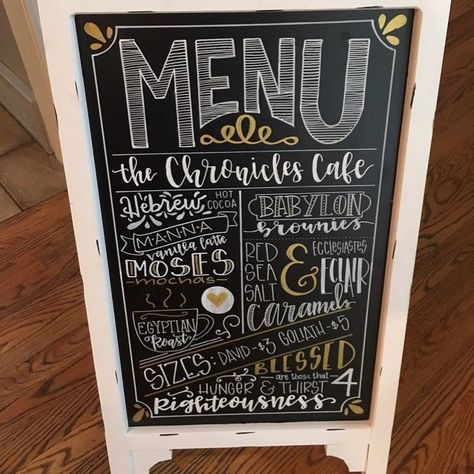 MENU
the Chronicles Cafe
Hebrew HOT COCOA
MANNA
vanilla latte
MOSES
mochas
EGYPTIAN
Roast
BABYLON
brownies
RED SEA SALT & Ecclesiastes ECLAIR
Caramels
SIZES: DAVID-$3 GOLIATH-$5
BLESSED
are those that
HUNGER & THIRST 4
Righteousness